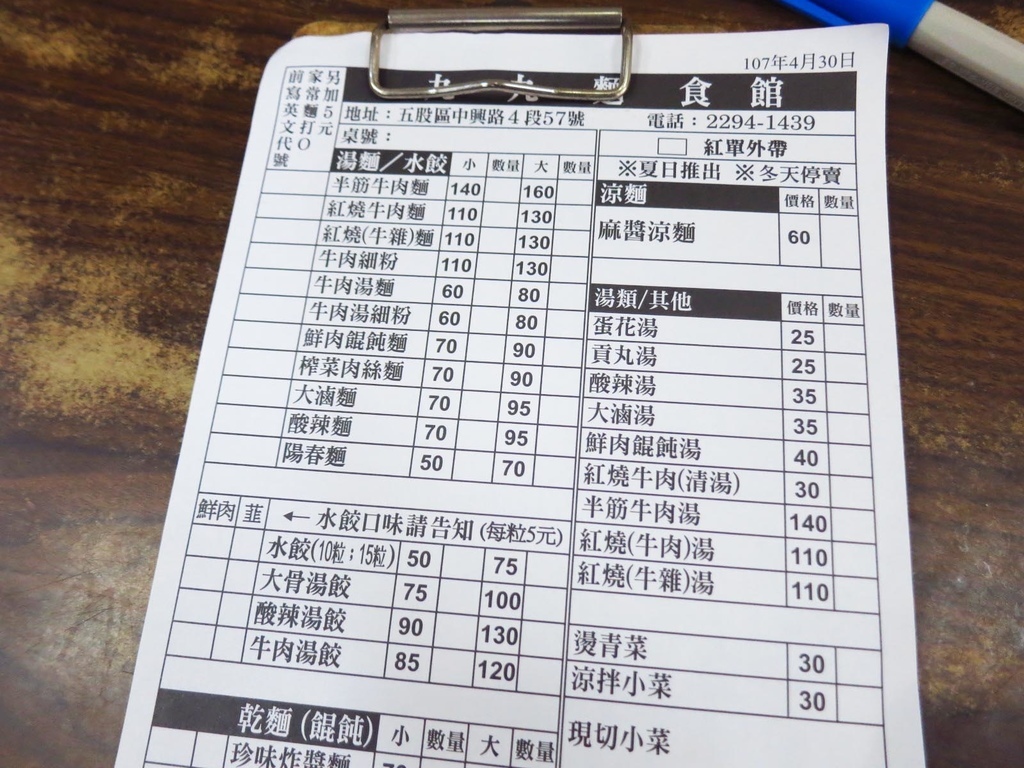 107年4月30日
九九麵食館
另加5元
家常麵打O
前寫英文代號
地址：五股區中興路4段57號 電話：2294-1439
桌號：
紅單外帶
※夏日推出 ※冬天停賣
湯麵／水餃 小 數量 大 數量
半筋牛肉麵 140 160
紅燒牛肉麵 110 130
紅燒(牛雜)麵 110 130
牛肉細粉 110 130
牛肉湯麵 60 80
牛肉湯細粉 60 80
鮮肉餛飩麵 70 90
榨菜肉絲麵 70 90
大滷麵 70 95
酸辣麵 70 95
陽春麵 50 70
鮮肉 韮 ←水餃口味請告知(每粒5元)
水餃(10粒；15粒) 50 75
大骨湯餃 75 100
酸辣湯餃 90 130
牛肉湯餃 85 120
乾麵(餛飩) 小 數量 大 數量
珍味炸醬麵
涼麵 價格 數量
麻醬涼麵 60
湯類/其他 價格 數量
蛋花湯 25
貢丸湯 25
酸辣湯 35
大滷湯 35
鮮肉餛飩湯 40
紅燒牛肉(清湯) 30
半筋牛肉湯 140
紅燒(牛肉)湯 110
紅燒(牛雜)湯 110
燙青菜 30
涼拌小菜 30
現切小菜